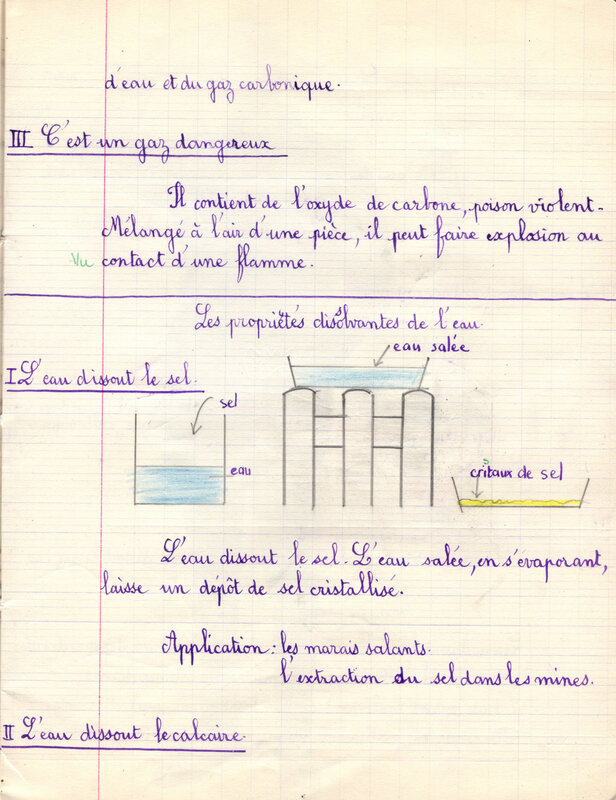 d'eau et du gaz carbonique.
III C'est un gaz dangereux
Il contient de l'oxyde de carbone, poison violent-
Mélangé à l'air d'une pièce, il peut faire explosion au
Vu contact d'une flamme.
Les propriétés dissolvantes de l'eau.
eau salée
I L'eau dissout le sel.
sel
eau
cristaux de sel
L'eau dissout le sel. L'eau salée, en s'evaporant,
laisse un dépôt de sel cristallisé.
Application : les marais salants.
l'extraction du sel dans les mines.
II L'eau dissout le calcaire.